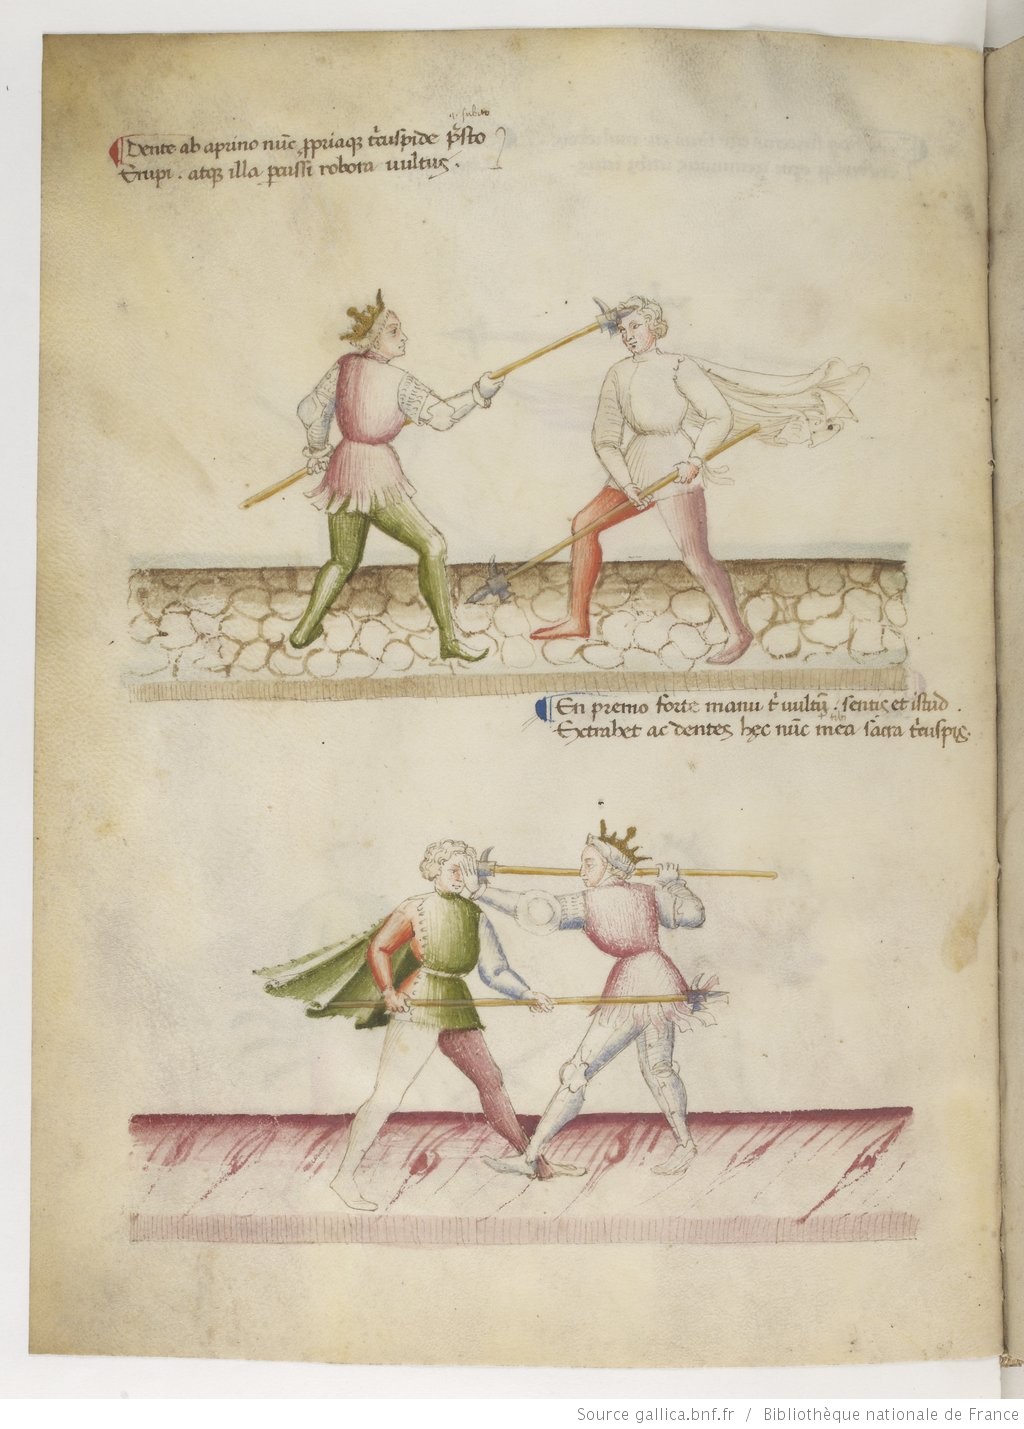 .i. subito
Dente ab aprino nūc ꝓpriaqꝫ t'cuspide p̄sto
Erupi . atqꝫ illa ꝑcussi robora uultus .
En premo forte manu t' uultū . sentis et istud .
Extrahet ac dentes hęc nūc mea sacra t'cuspis.
Source gallica.bnf.fr / Bibliothèque nationale de France